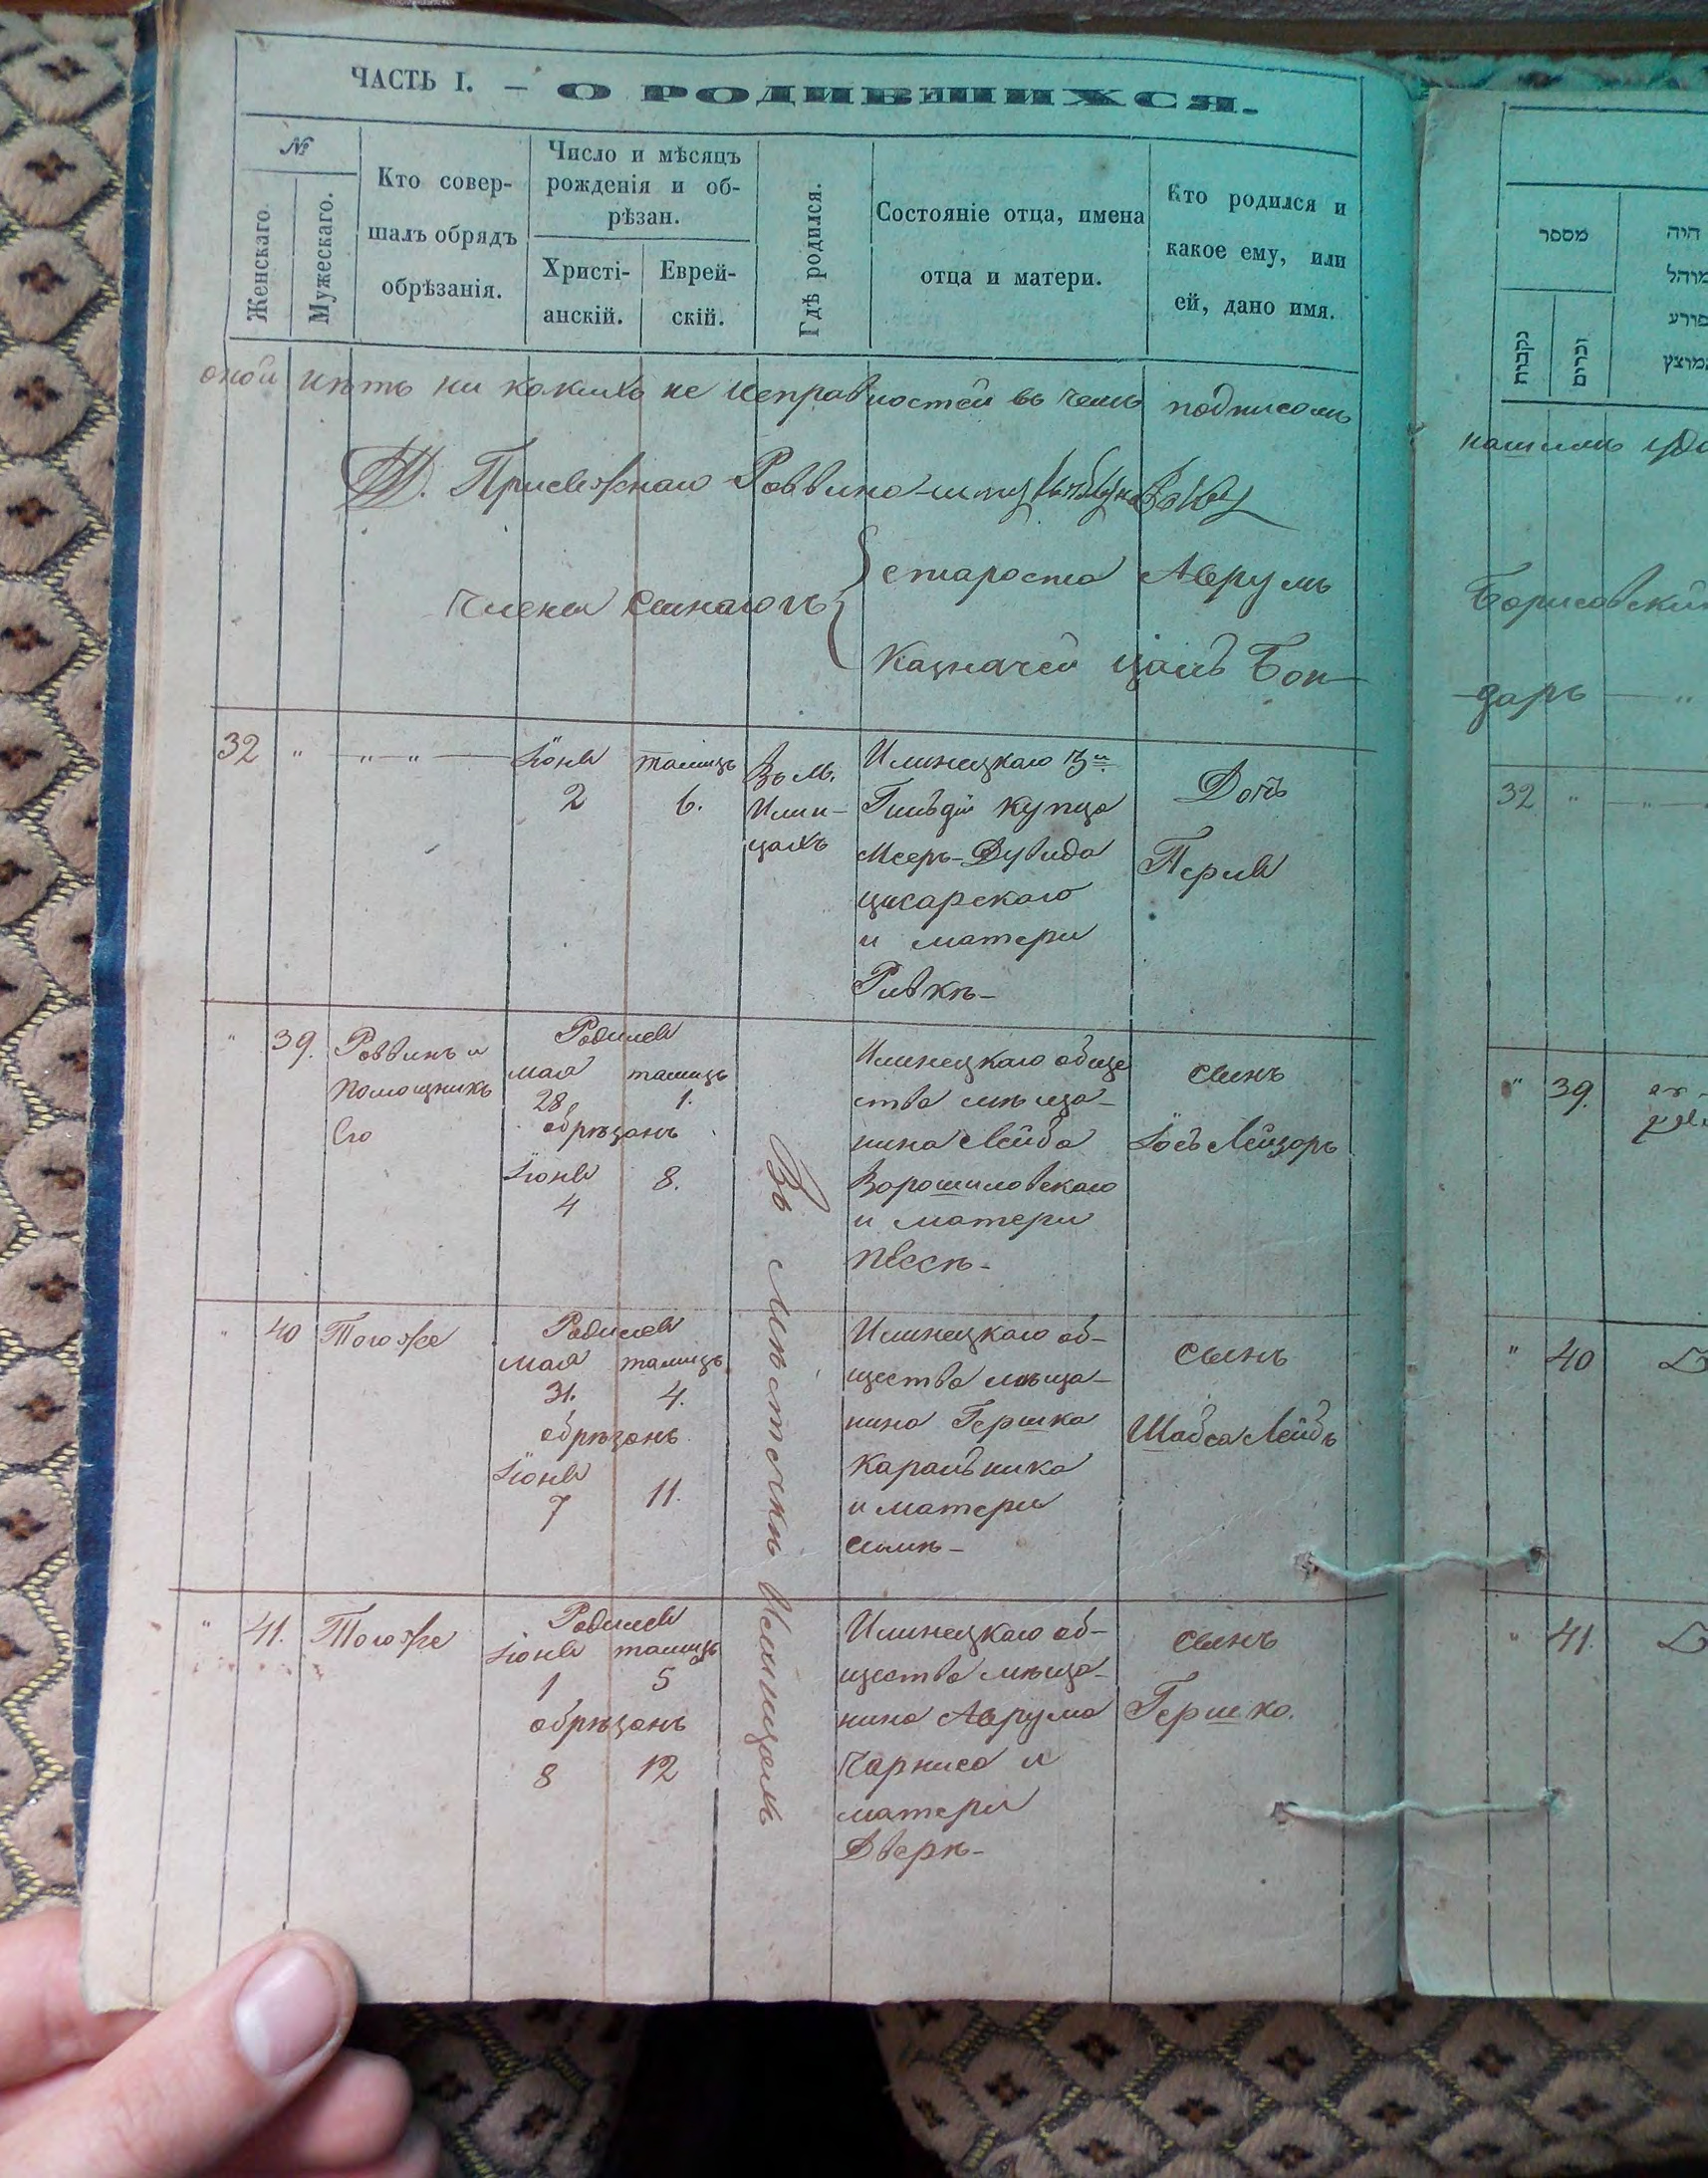 ЧАСТЬ I. — О РОДИВШИХСЯ.
№
Женскаго.
Мужескаго.
Кто совер-
шалъ обрядъ
обрѣзанія.
Число и мѣсяцъ
рожденія и об-
рѣзан.
Христі-
анскій.
Еврей-
скій.
Гдѣ родился.
Состояніе отца, имена
отца и матери.
Кто родился и
какое ему, или
ей, дано имя.
оной нѣтъ ни какихъ не исправностей въ чемъ подписомъ
Присяжнаго Раввина
Члены Синагоги
староста Аврумъ
Казначей Бон-
32 " — " — Іюня 2 тамизъ 6.
Въ м.
Илин-
цахъ
Илинецкаго 3й
Гильдіи купца
Меер-Дувида
цисарскаго
и матери
Ривкѣ-
Дочь
Перля
" 39. Раввинъ и
помощникъ
Его
Родился
мая тамизъ
28 1.
обрѣзанъ
Іюня 8.
4
Въ мѣстечкѣ Илинцахъ
Илинецкаго обще
ства мѣща-
нина Лейба
Ворошиловскаго
и матери
Песѣ-
сынъ
Іось Лейзоръ
" 40 Тогоже
Родился
мая тамизъ
31. 4.
обрѣзанъ
Іюня
7 11.
Илинецкаго об-
щества мѣща-
нина Гершка
Каральника
и матери
Симѣ-
сынъ
Шабса Лейбъ
" 41. Тогоже
Родился
Іюня тамизъ
1 5
обрѣзанъ
8 12
Илинецкаго об-
щества мѣща-
нина Аврума
Чарниса и
матери
Двери-
сынъ
Гершко.
היה
מספר
נקבות
זכרים
Борисовскій
дарь — "
32 " — "
" 39.
" 40
" 41.